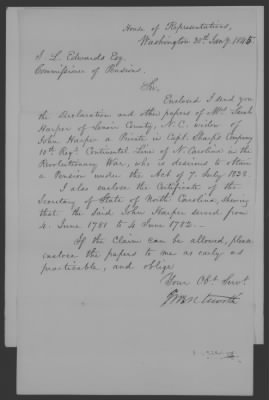 House of Representatives,
Washington 20th Jany 1845
J. L. Edwards Esq
Commissioner of Pensions.
Sir,
Enclosed I send you
the Declaration and other papers of Mrs Sarah
Harper of Lenoir County, N.C. widow of
John Harper a Private in Capt. Sharp's Company
10th Regt Continental Line of N. Carolina in the
Revolutionary War, who is desirous to obtain
a Pension under the Act of 7. July 1838.
I also enclose the Certificate of the
Secretary of State of North Carolina, shewing
that the said John Harper served from
4. June 1781 to 4 June 1782.
If the Claim can be allowed, please
enclose the papers to me as early as
practicable, and oblige
Your Obt Servt